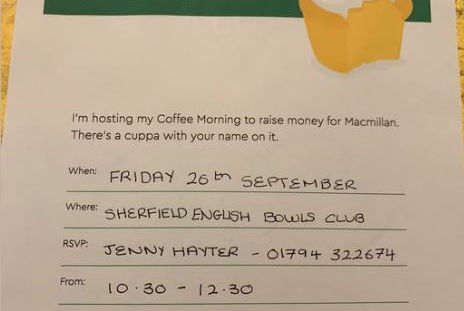 I'm hosting my Coffee Morning to raise money for Macmillan.
There's a cuppa with your name on it.
When: FRIDAY 26th SEPTEMBER
Where: SHERFIELD ENGLISH BOWLS CLUB
RSVP: JENNY HAYTER - 01794 322674
From: 10.30 - 12.30